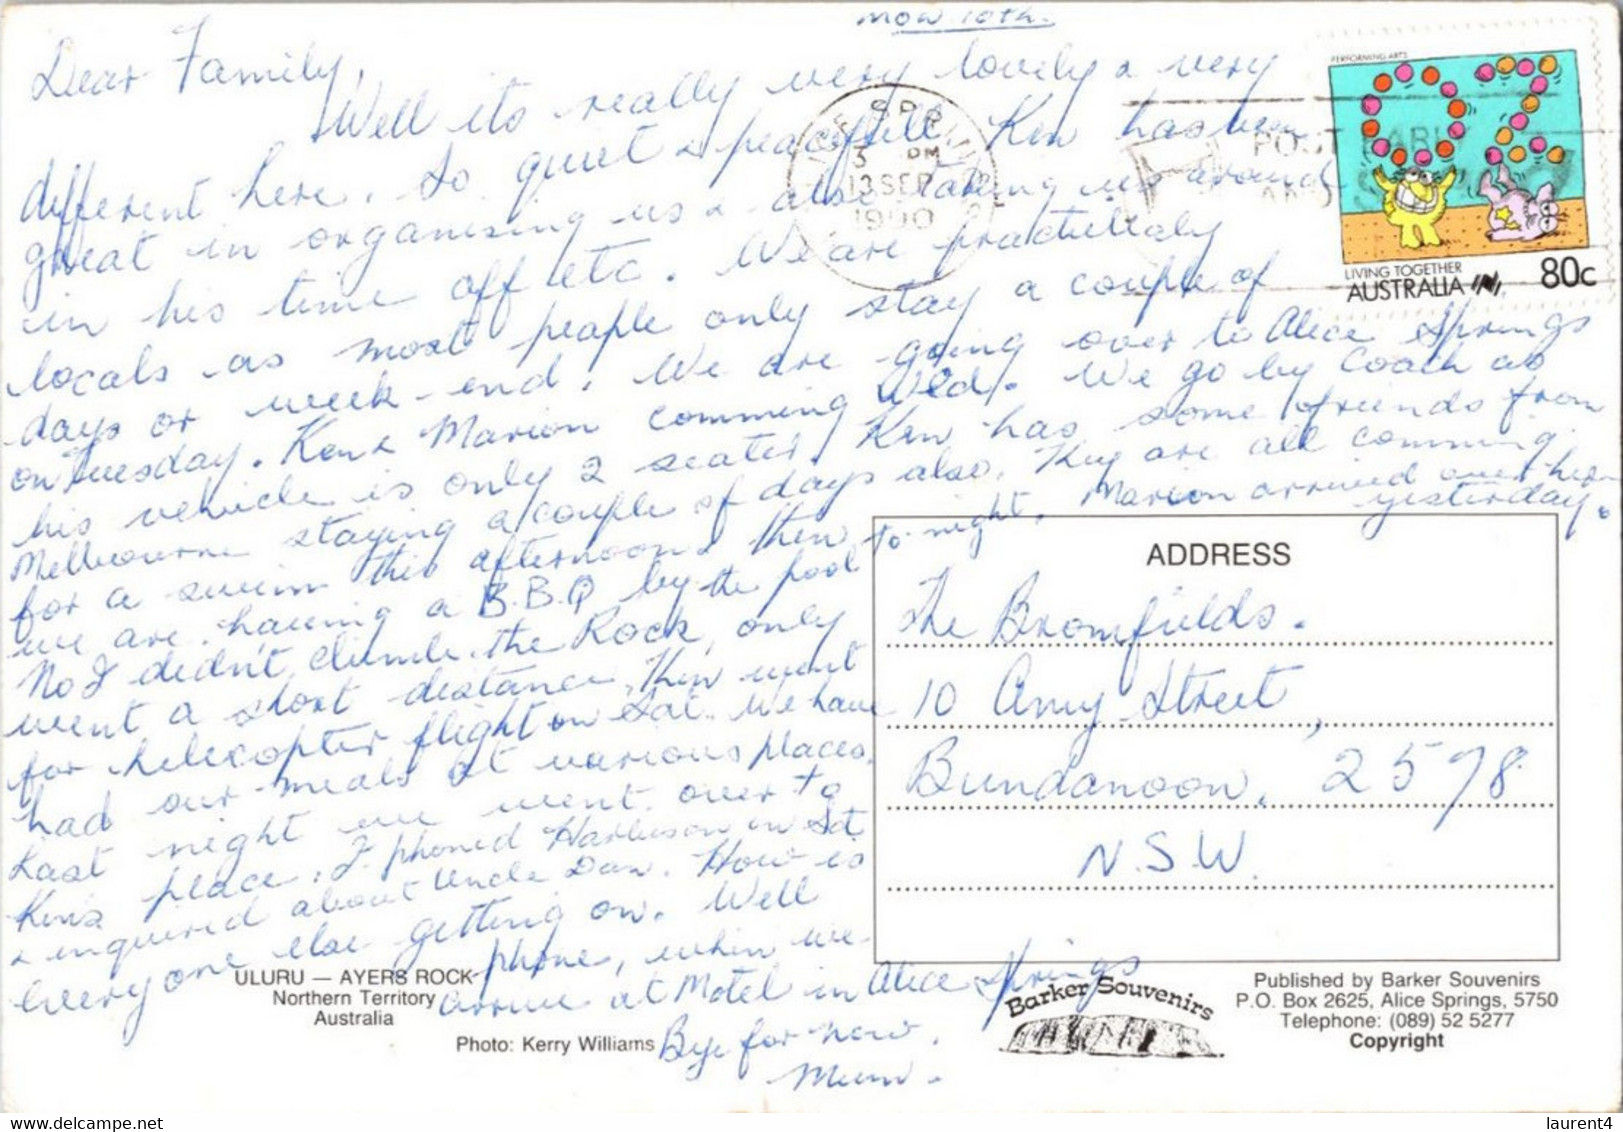 Mon 10th.
Dear Family,
Well its really very lovely & very
different here. So quiet & peacefull, Ken has been
great in organising us & also taking us around
in his time off etc. We are practicllaly
locals as most people only stay a couple of
days or week-end. We are going over to Alice Springs
on Tuesday. Ken & Marion comming Wed. We go by Coach as
his vehicle is only 2 seater. Ken has some friends from
Melbourne staying a couple of days also. They are all comming
for a swim this afternoon & then to-night. Marion arrived over here
yesterday.
we are having a B.B.Q by the pool
No I didn't climb the Rock, only
went a short distance, then went
for helecopter flight on Sat. We have
had our meals at various places,
Last night we went over to
Ken's place. I phoned Harbison in Sat
& inquired about Uncle Dan. How is
everyone else getting on. Well
phone, when we
arrive at Motel in Alice Springs
Bye for now.
Mum.
ALICE SPRINGS
3 PM
13 SEP
1990
POST EARLY
PERFORMING ARTS
LIVING TOGETHER
AUSTRALIA 80c
ADDRESS
The Bromfields.
10 Amy Street,
Bundanoon. 2578
N.S.W.
ULURU — AYERS ROCK
Northern Territory
Australia
Photo: Kerry Williams
Barker Souvenirs
Published by Barker Souvenirs
P.O. Box 2625, Alice Springs, 5750
Telephone: (089) 52 5277
Copyright
delcampe.net
laurent4